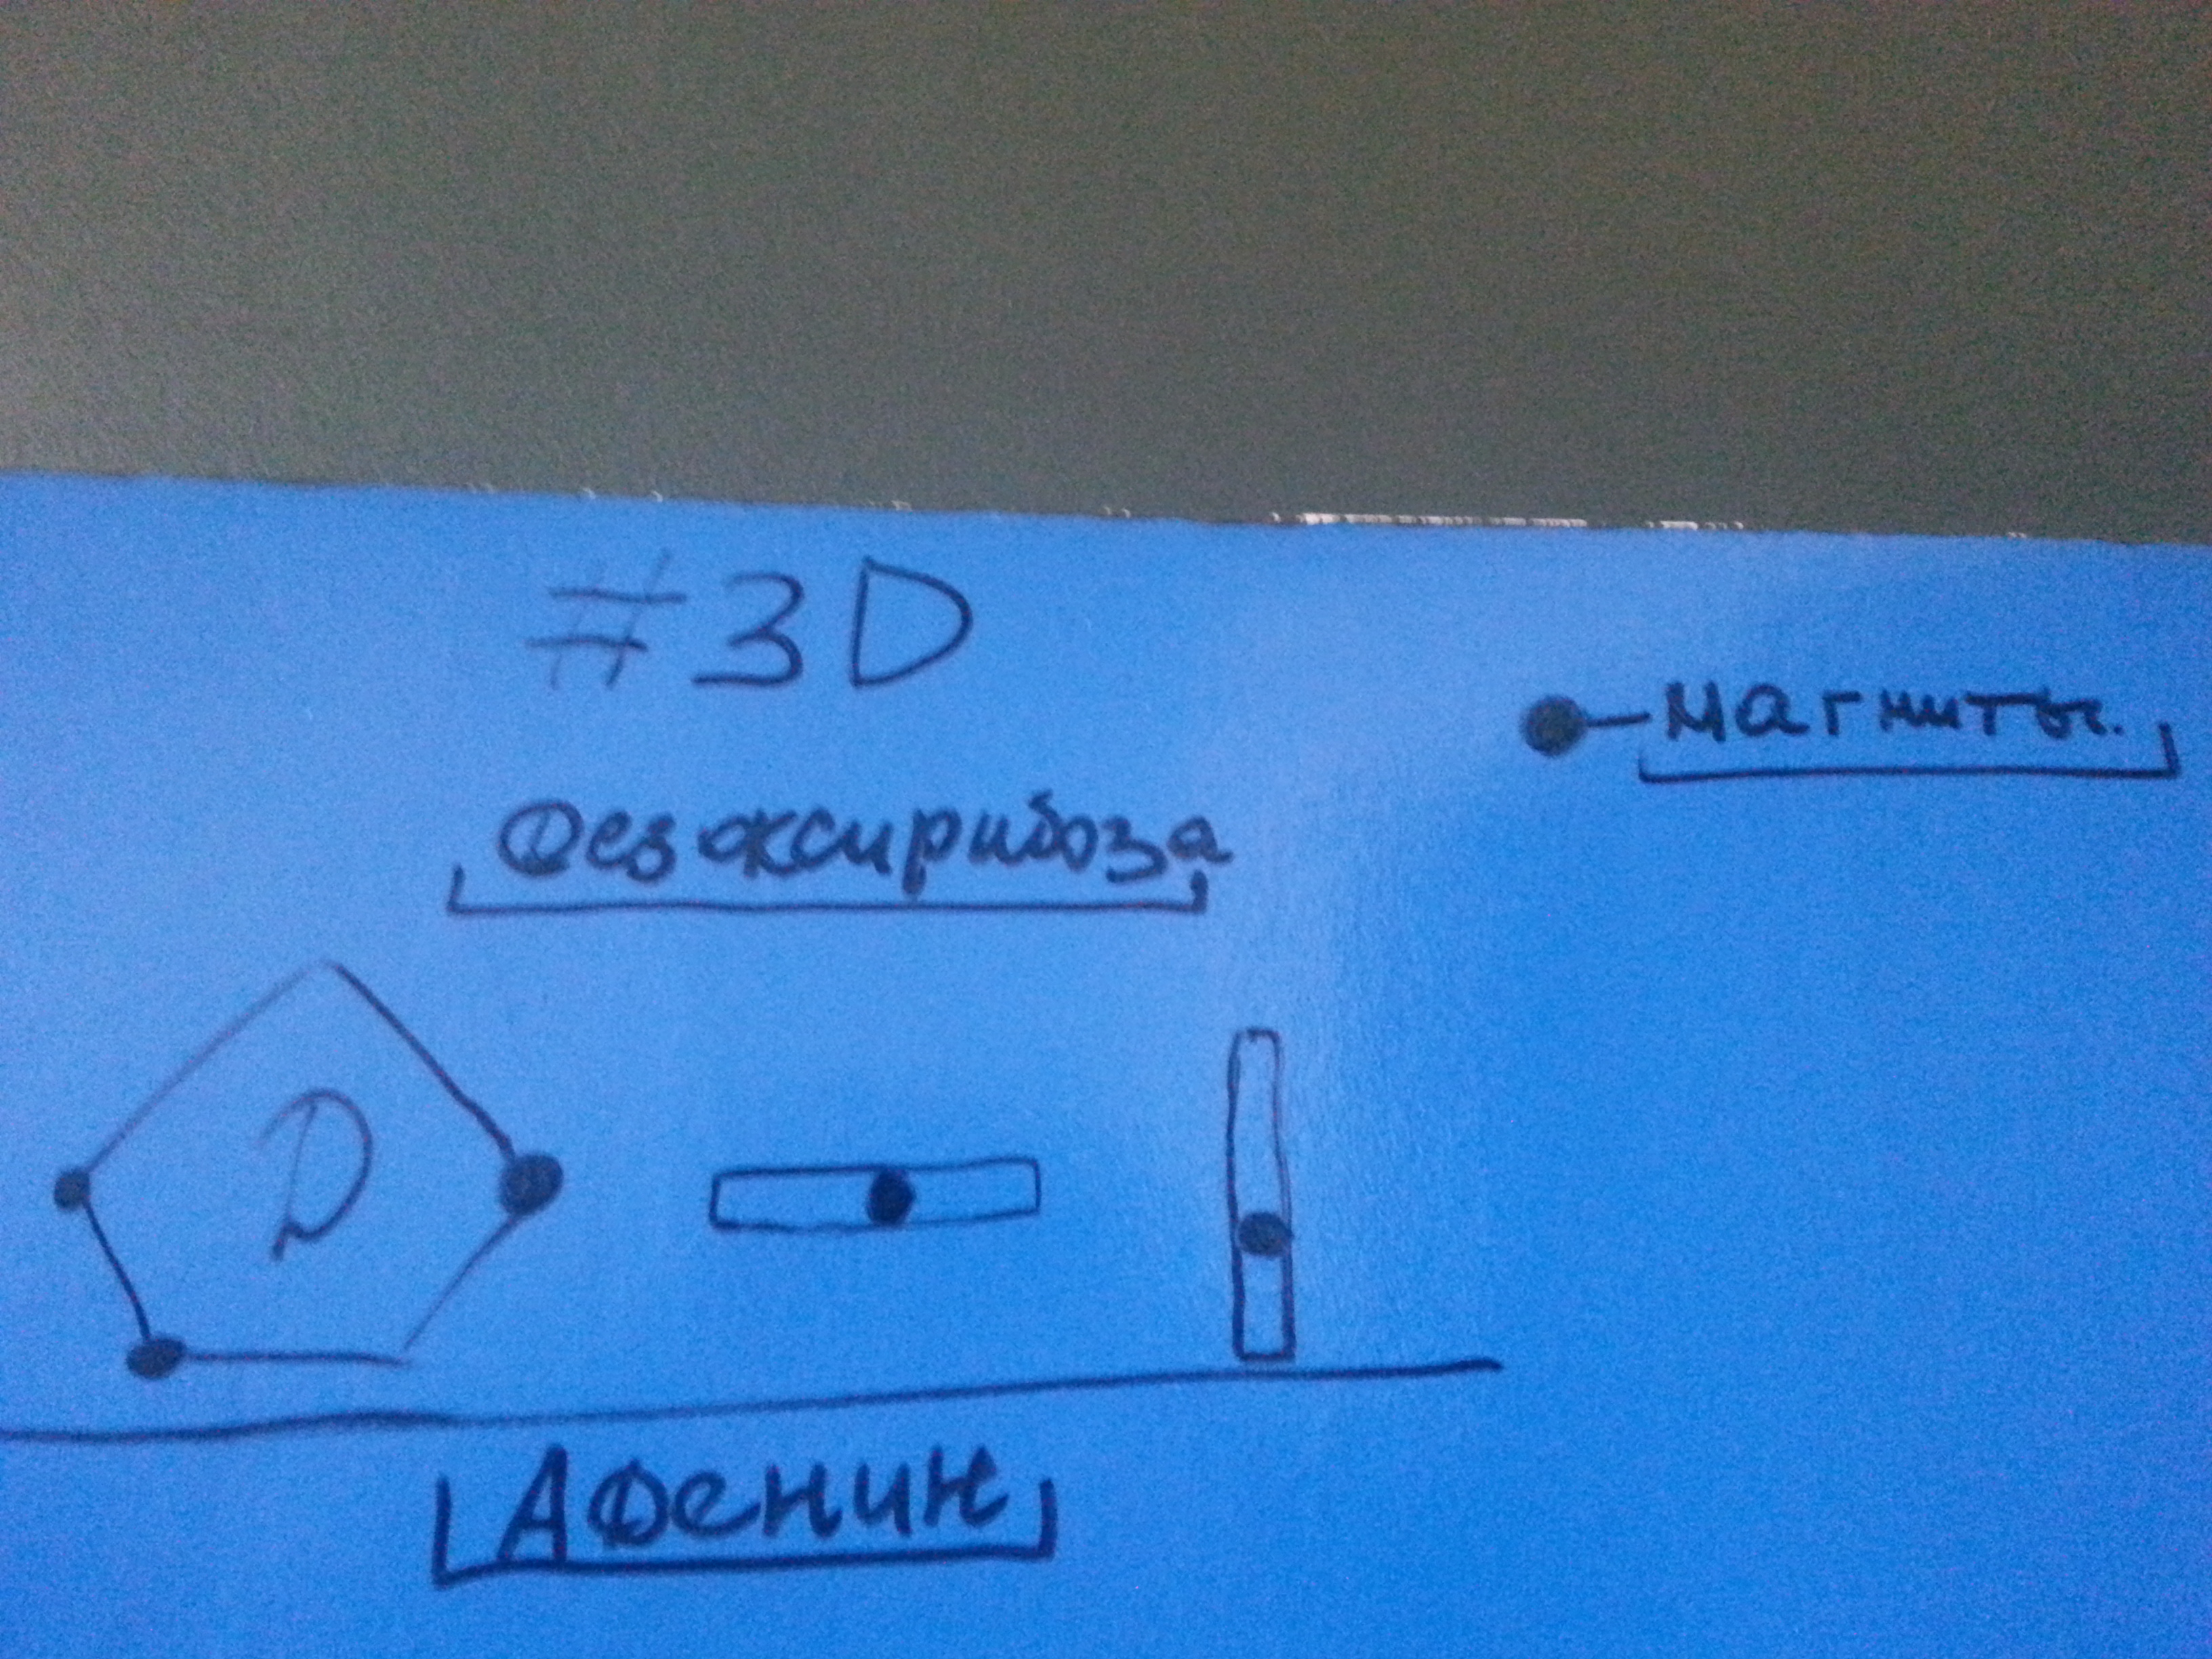 #3D
магниты.
Дезоксирибоза
D
Аденин